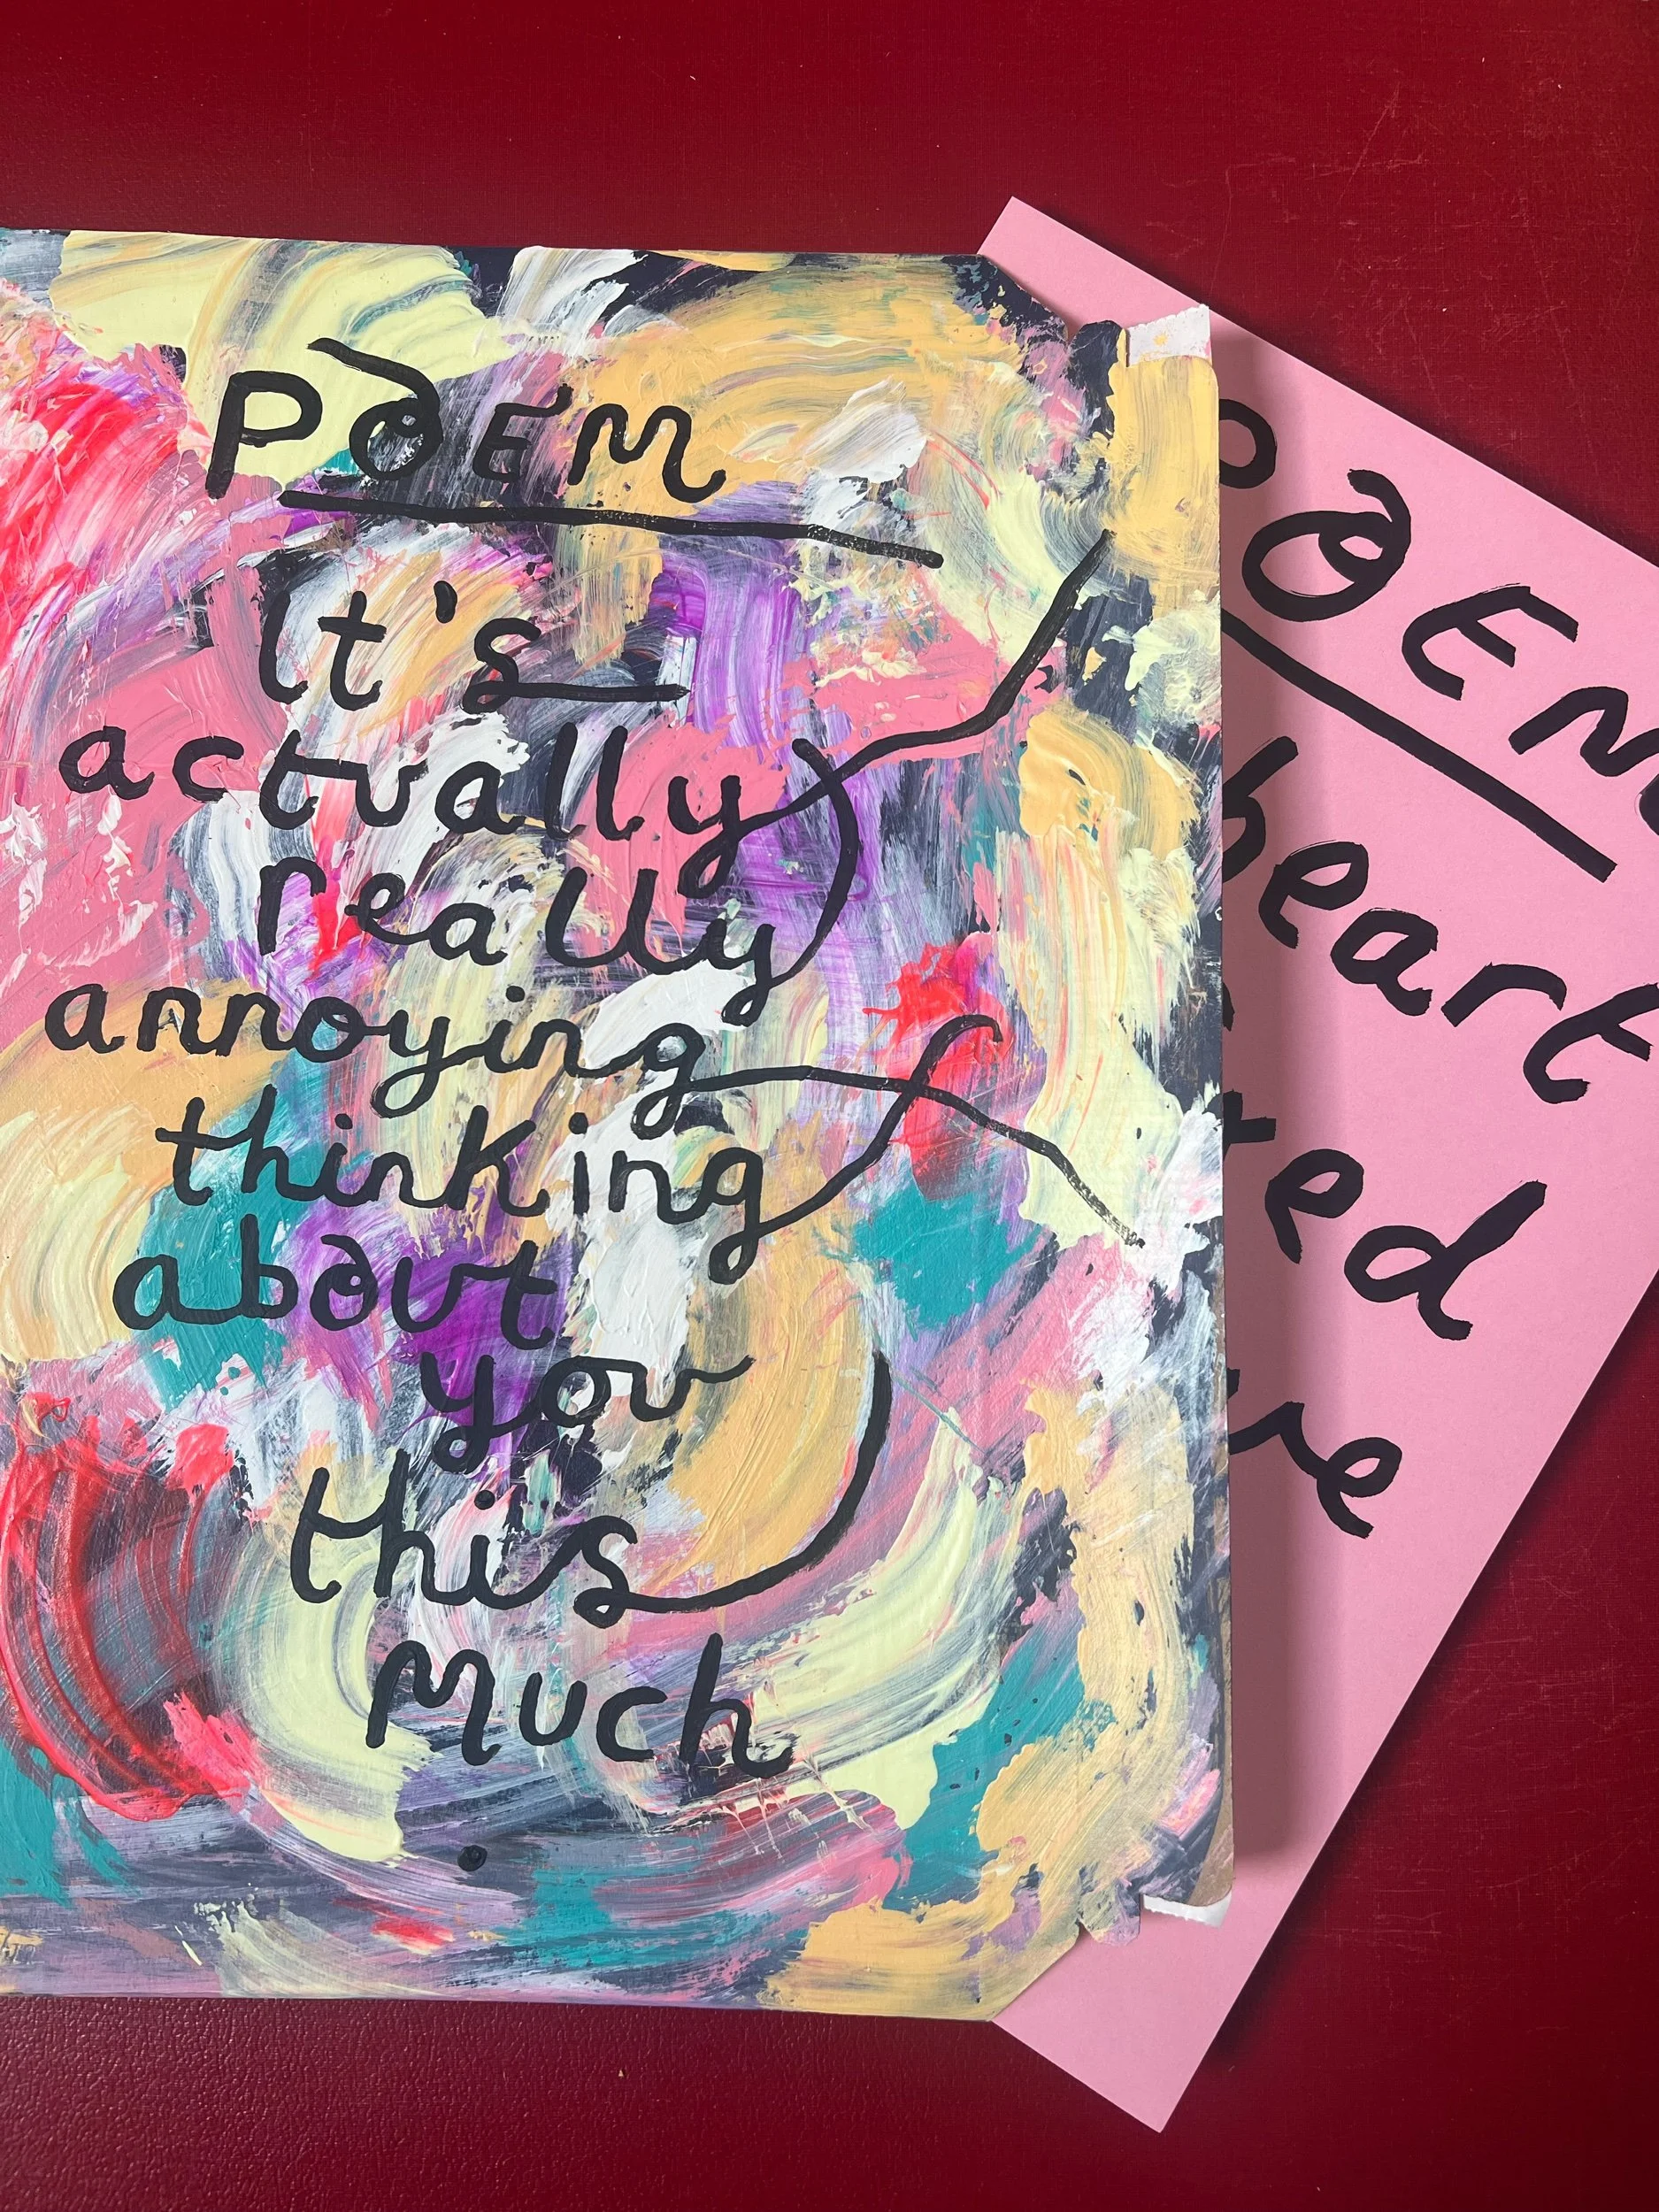 POEM
It's
actually
really
annoying
thinking
about
you
this
much
.
POEM
heart